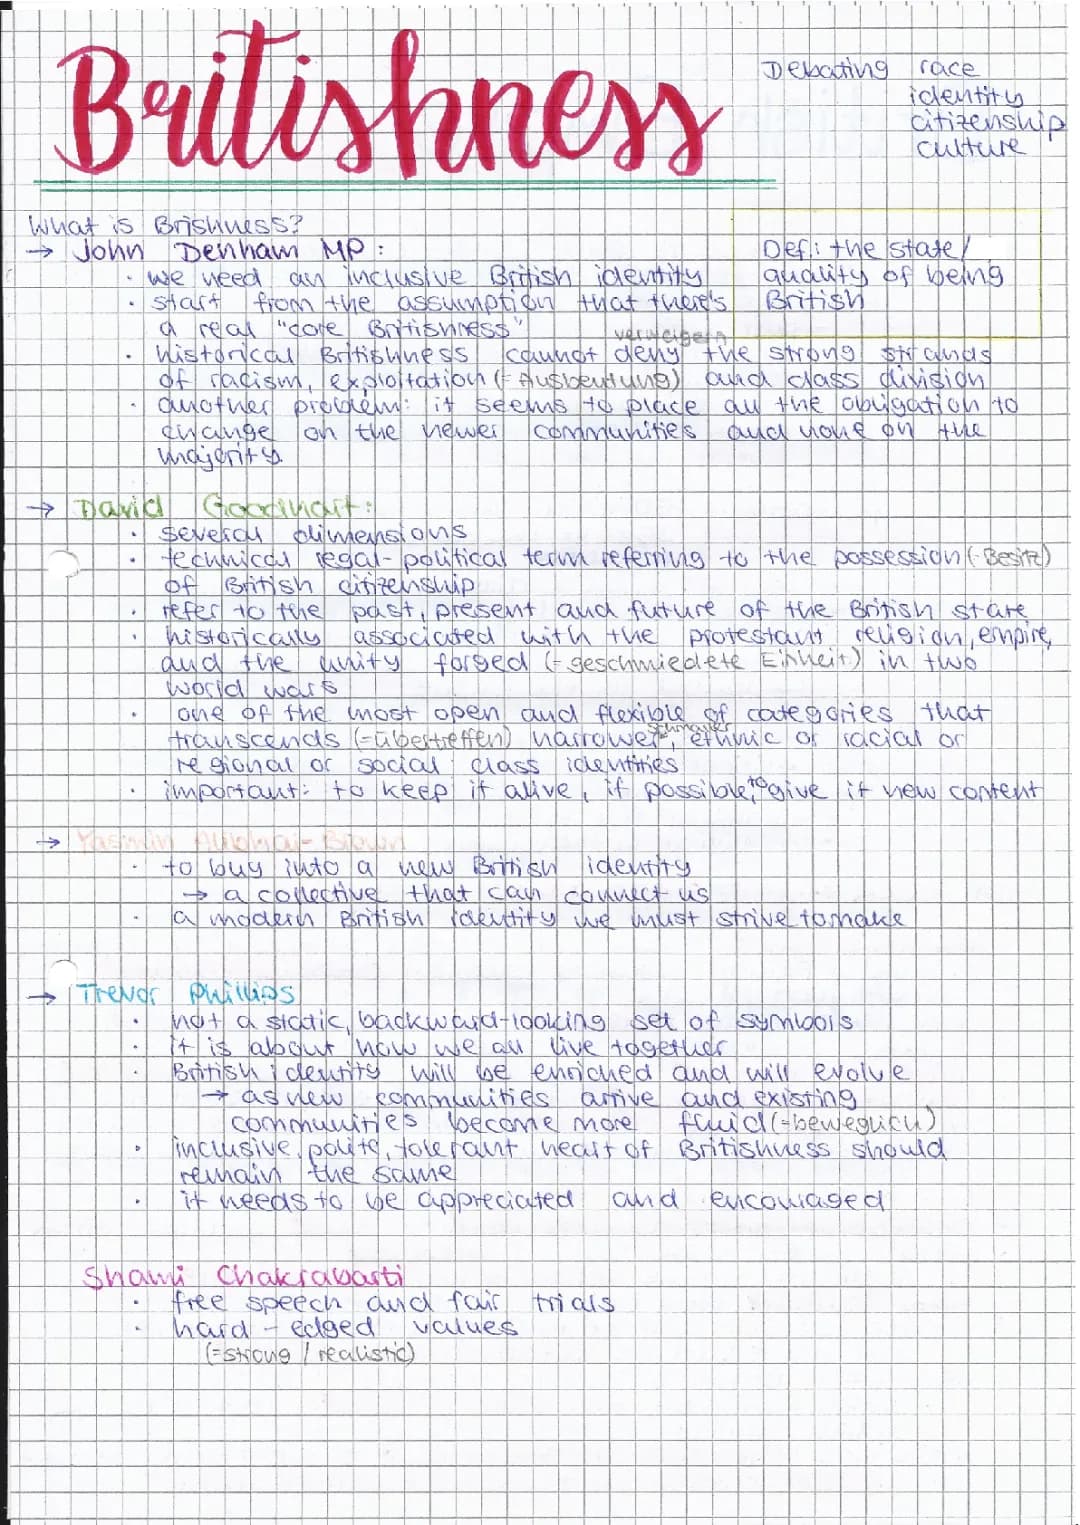 Britishness
Debating race
identity
citizenship
culture
What is Brishness?
→ John Denham MP:
Def.: the state/
quality of being
British
· we need an inclusive British identity
· start from the assumption that there's
a real "core Britishness"
verweigern
· historical Britishness cannot deny the strong strands
of racism, exploitation (= Ausbeutung) and class division
· another problem: it seems to place all the obligation to
change on the newer communities and none on the
majority
→ David Goodhart:
· several dimensions
· technical legal-political term referring to the possession (=Besitz)
of British citizenship
· refer to the past, present and future of the British state
· historically associated with the protestant religion, empire,
and the unity forged (= geschmiedete Einheit) in two
world wars
· one of the most open and flexible of categories that
schmaler
transcends (=übertreffen) narrower, ethnic or racial or
regional or social class identities
· important: to keep it alive, if possible, to give it new content
→ Yasmin Alibhai-Brown
· to buy into a new British identity
→ a collective that can connect us
· a modern British identity we must strive to make
→ Trevor Phillips
· not a static, backward-looking set of symbols
· it is about how we all live together
· British identity will be enriched and will evolve
→ as new communities arrive and existing
communities become more fluid (=beweglich)
· inclusive, polite, tolerant heart of Britishness should
remain the same
· it needs to be appreciated and encouraged
Shami Chakrabarti
· free speech and fair trials
· hard-edged values
(=strong / realistic)